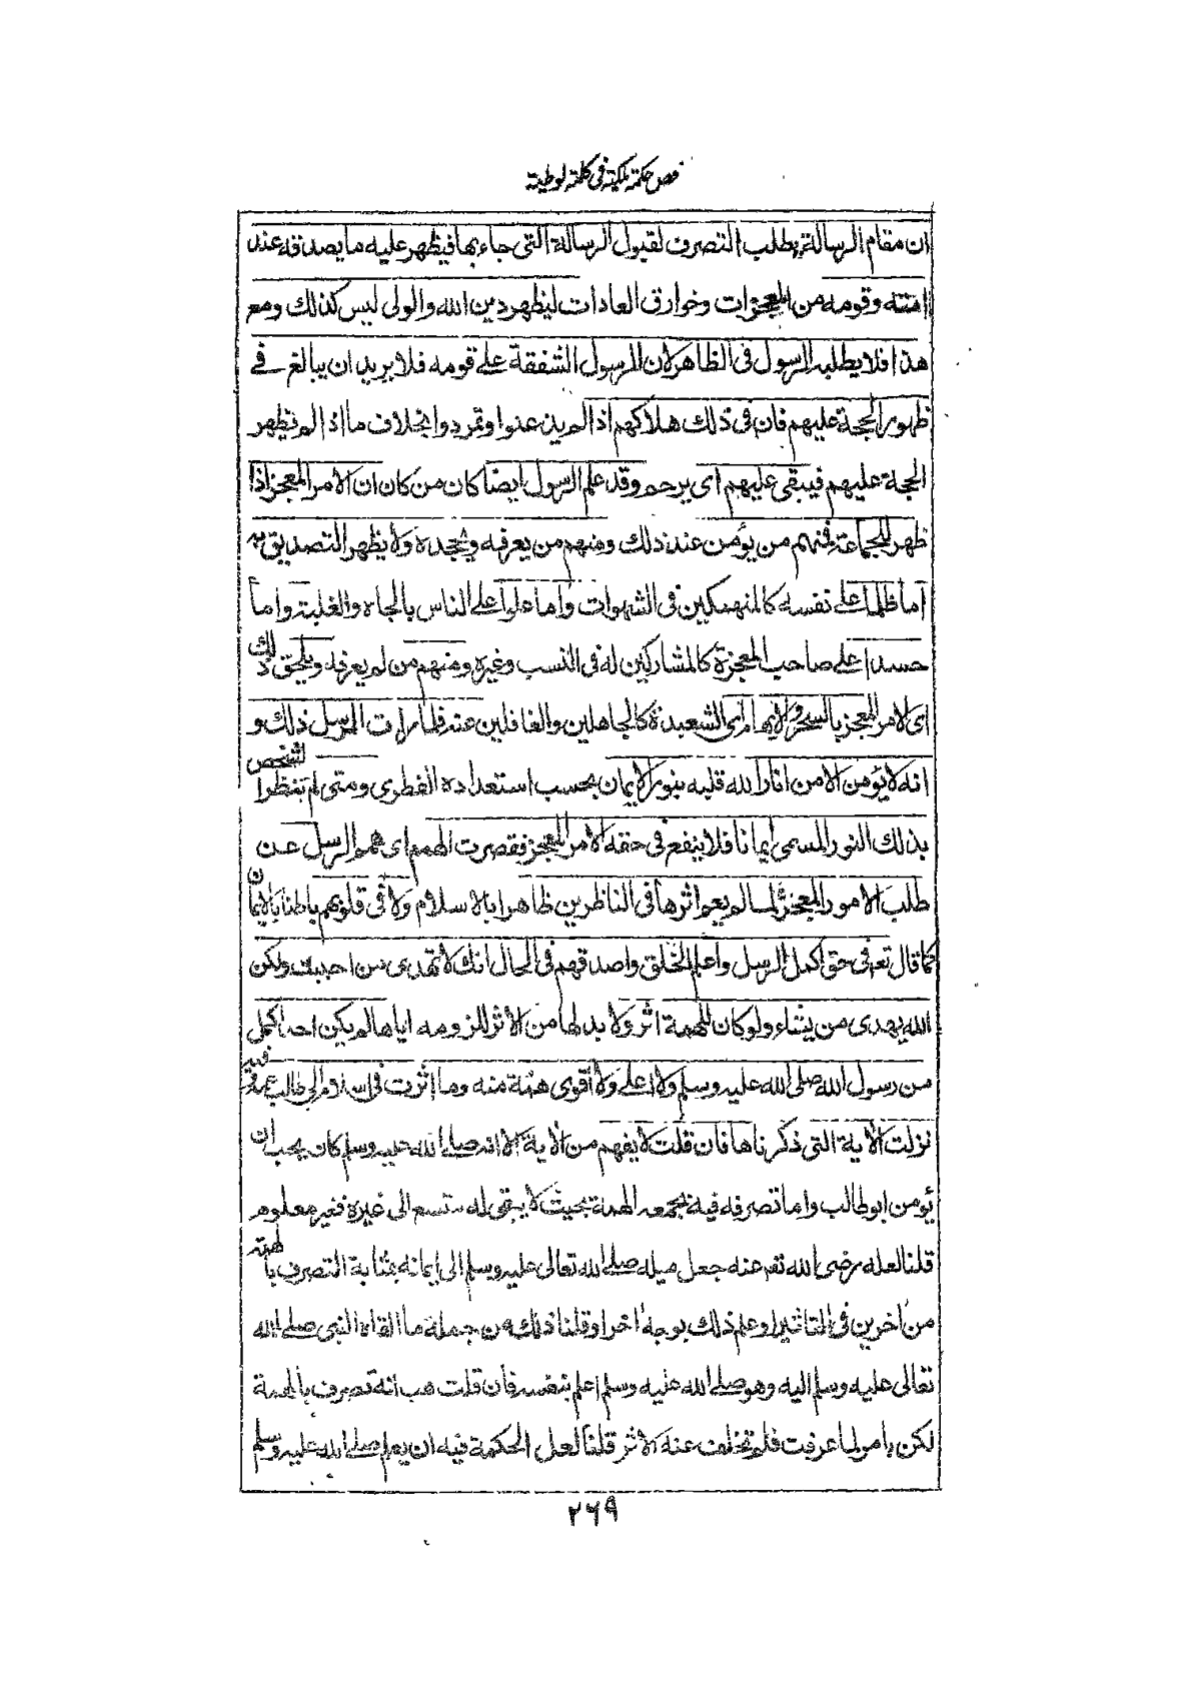 فص حكمة ملكية فى كلمة لوطية
ان مقام الرسالة يطلب التصرف لقبول الرسالة التى جاء بها فيظهر عليه ما يصدقه عند
امته وقومه من المعجزات وخوارق العادات ليظهر دين الله والولى ليس كذلك ومع
هذا فلا يطلبه الرسول فى الظاهر لان للرسول الشفقة على قومه فلا يريد ان يبالغ فے
ظهور الحجة عليهم فان فى ذلك هلاكهم اذا لم يذعنوا وتمردوا بخلاف ما اذا لم تظهر
الحجة عليهم فيبقى عليهم اى يرحم وقد علم الرسول ايضا كان من كان ان الامر المعجز اذا
ظهر للجماعة فمنهم من يؤمن عند ذلك ومنهم من يعرفه ويجحده ولا يظهر التصديق به
اما ظلما على نفسه كالمنهمكين فى الشهوات واما علوا على الناس بالجاه والغلبة واما
حسدا على صاحب المعجزة كالمشاركين له فى النسب وغيره ومنهم من لم يعرفه ويلحق ذلك
اى الامر المعجز بالسحر والايهام اى الشعبدة كالجاهلين والغافلين عنه فلما رات الرسل ذلك و
انه لا يؤمن الا من انار الله قلبه بنور الايمان بحسب استعداده الفطرى ومتى لم ينظر الشخص
بذلك النور المسمى ايمانا فلا ينفع فى حقه الامر المعجز فقصرت الهمم اى همم الرسل عن
طلب الامور المعجزة لما لم يعم اثرها فى الناظرين ظاهرا بالاسلام ولا فى قلوبهم باطنا بالايمان
كما قال تعـ فى حق اكمل الرسل واعلم الخلق واصدقهم فى الحال انك لا تهدى من احببت ولكن
الله يهدى من يشاء ولو كان للهمة اثر ولا بد لها من الاثر للزومه اياها لم يكن احد اكمل
من رسول الله صلى الله عليه وسلم ولا اعلى ولا اقوى همة منه وما اثرت فى اسلام ابى طالب عمه وفيه
نزلت الاية التى ذكرناها فان قلت لا يفهم من الاية الا انه صلى الله عليه وسلم كان يحب ان
يؤمن ابو طالب واما تصرفه فيه بجمعه الهمة بحيث لا يبقى له متسع الى غيره فغير معلوم
قلنا لعله رضى الله تعـ عنه جعل ميله صلى الله تعالى عليه وسلم الى ايمانه بمثابة التصرف بالهمة
من اخرين فى التاثير او علم ذلك بوجه اخر او قلنا ذلك من جملة ما القاه النبى صلى الله
تعالى عليه وسلم اليه وهو صلى الله عليه وسلم اعلم بنفسه فان قلت هب انه تصرف بالهمة
لكن بامر لما عرفت فلم تخلف عنه الاثر قلنا لعل الحكمة فيه ان يعلم صلى الله عليه وسلم
٢٦٩